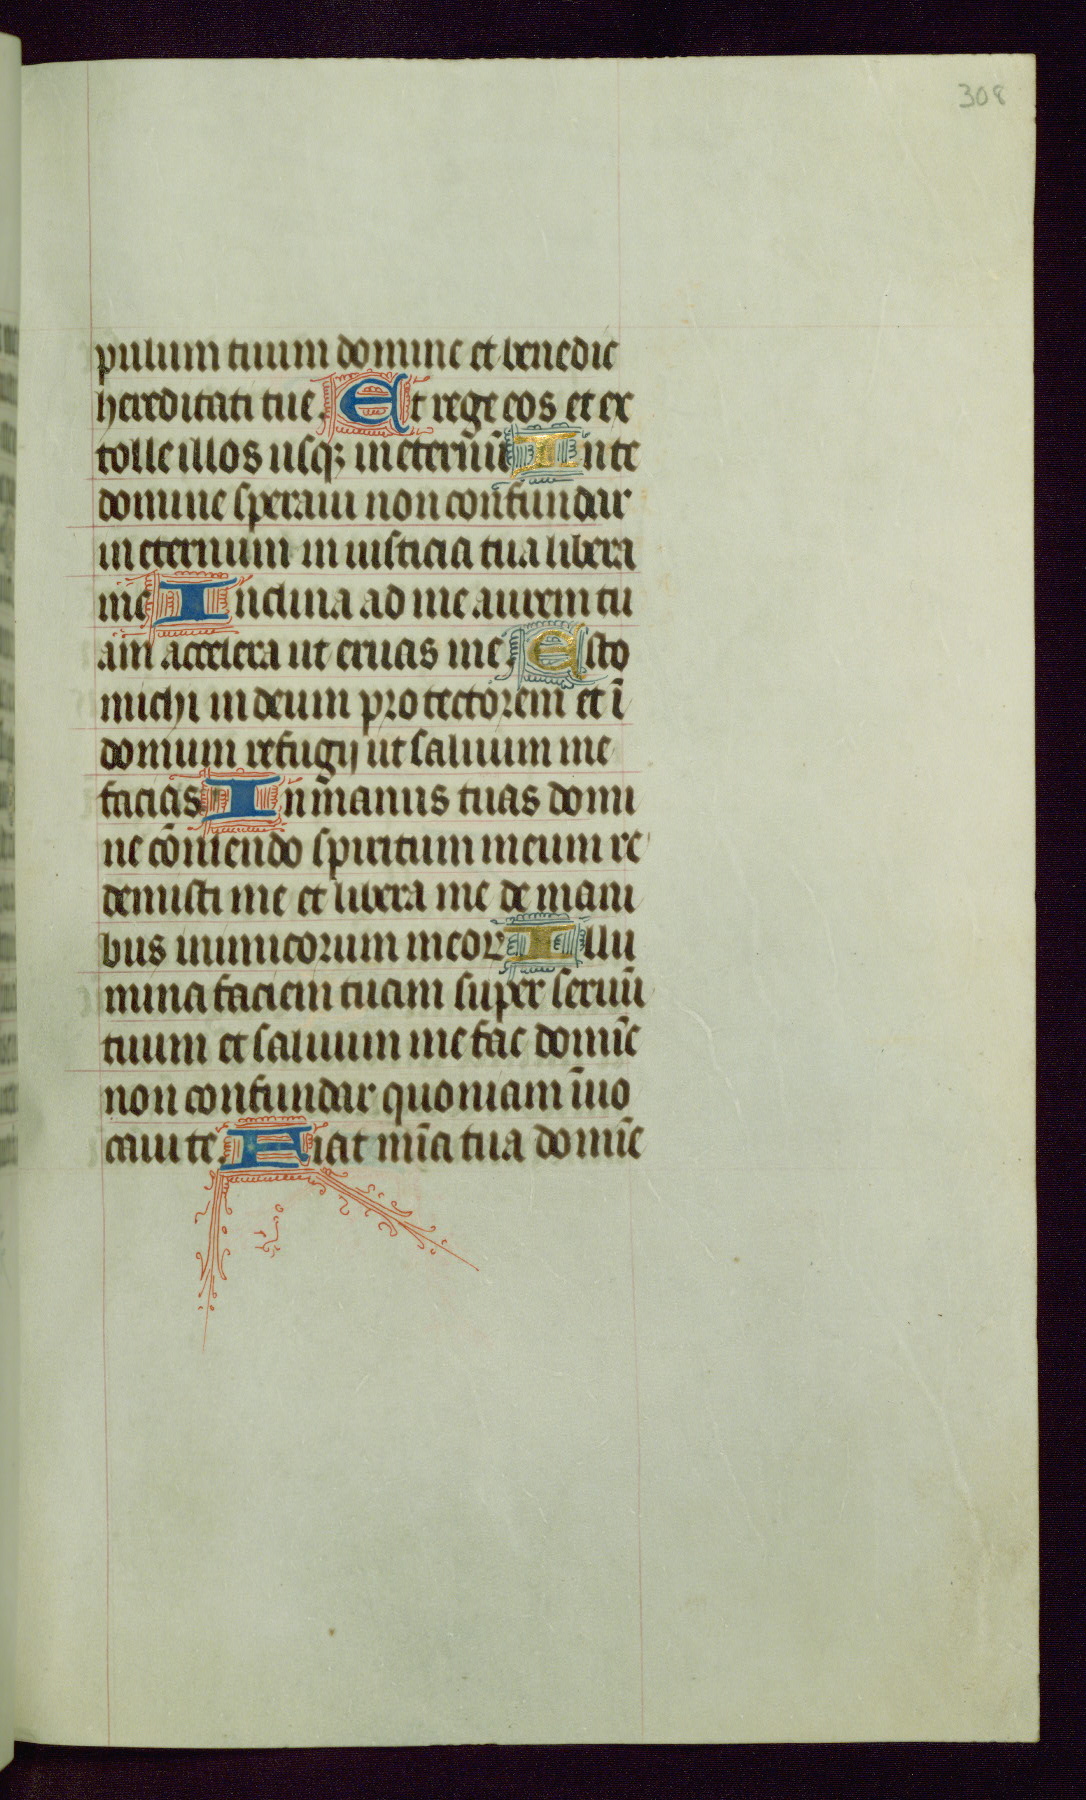 308
pulum tuum domine et benedic
hereditati tue. Et rege eos et ex
tolle illos usqꝫ in eternū In te
domine speraui non confundar
in eternum in iusticia tua libera
me Inclina ad me aurem tu
am accelera ut eruas me. Esto
michi in deum protectorem et ī
domum refugij ut saluum me
facias In manus tuas domi
ne cōmendo spiritum meum re
demisti me et libera me de mani
bus inimicorum meoꝝ Illu
mina faciem tuam super seruū
tuum et saluum me fac domīe
non confundar quoniam īuo
caui te. Fiat mīa tua domīe